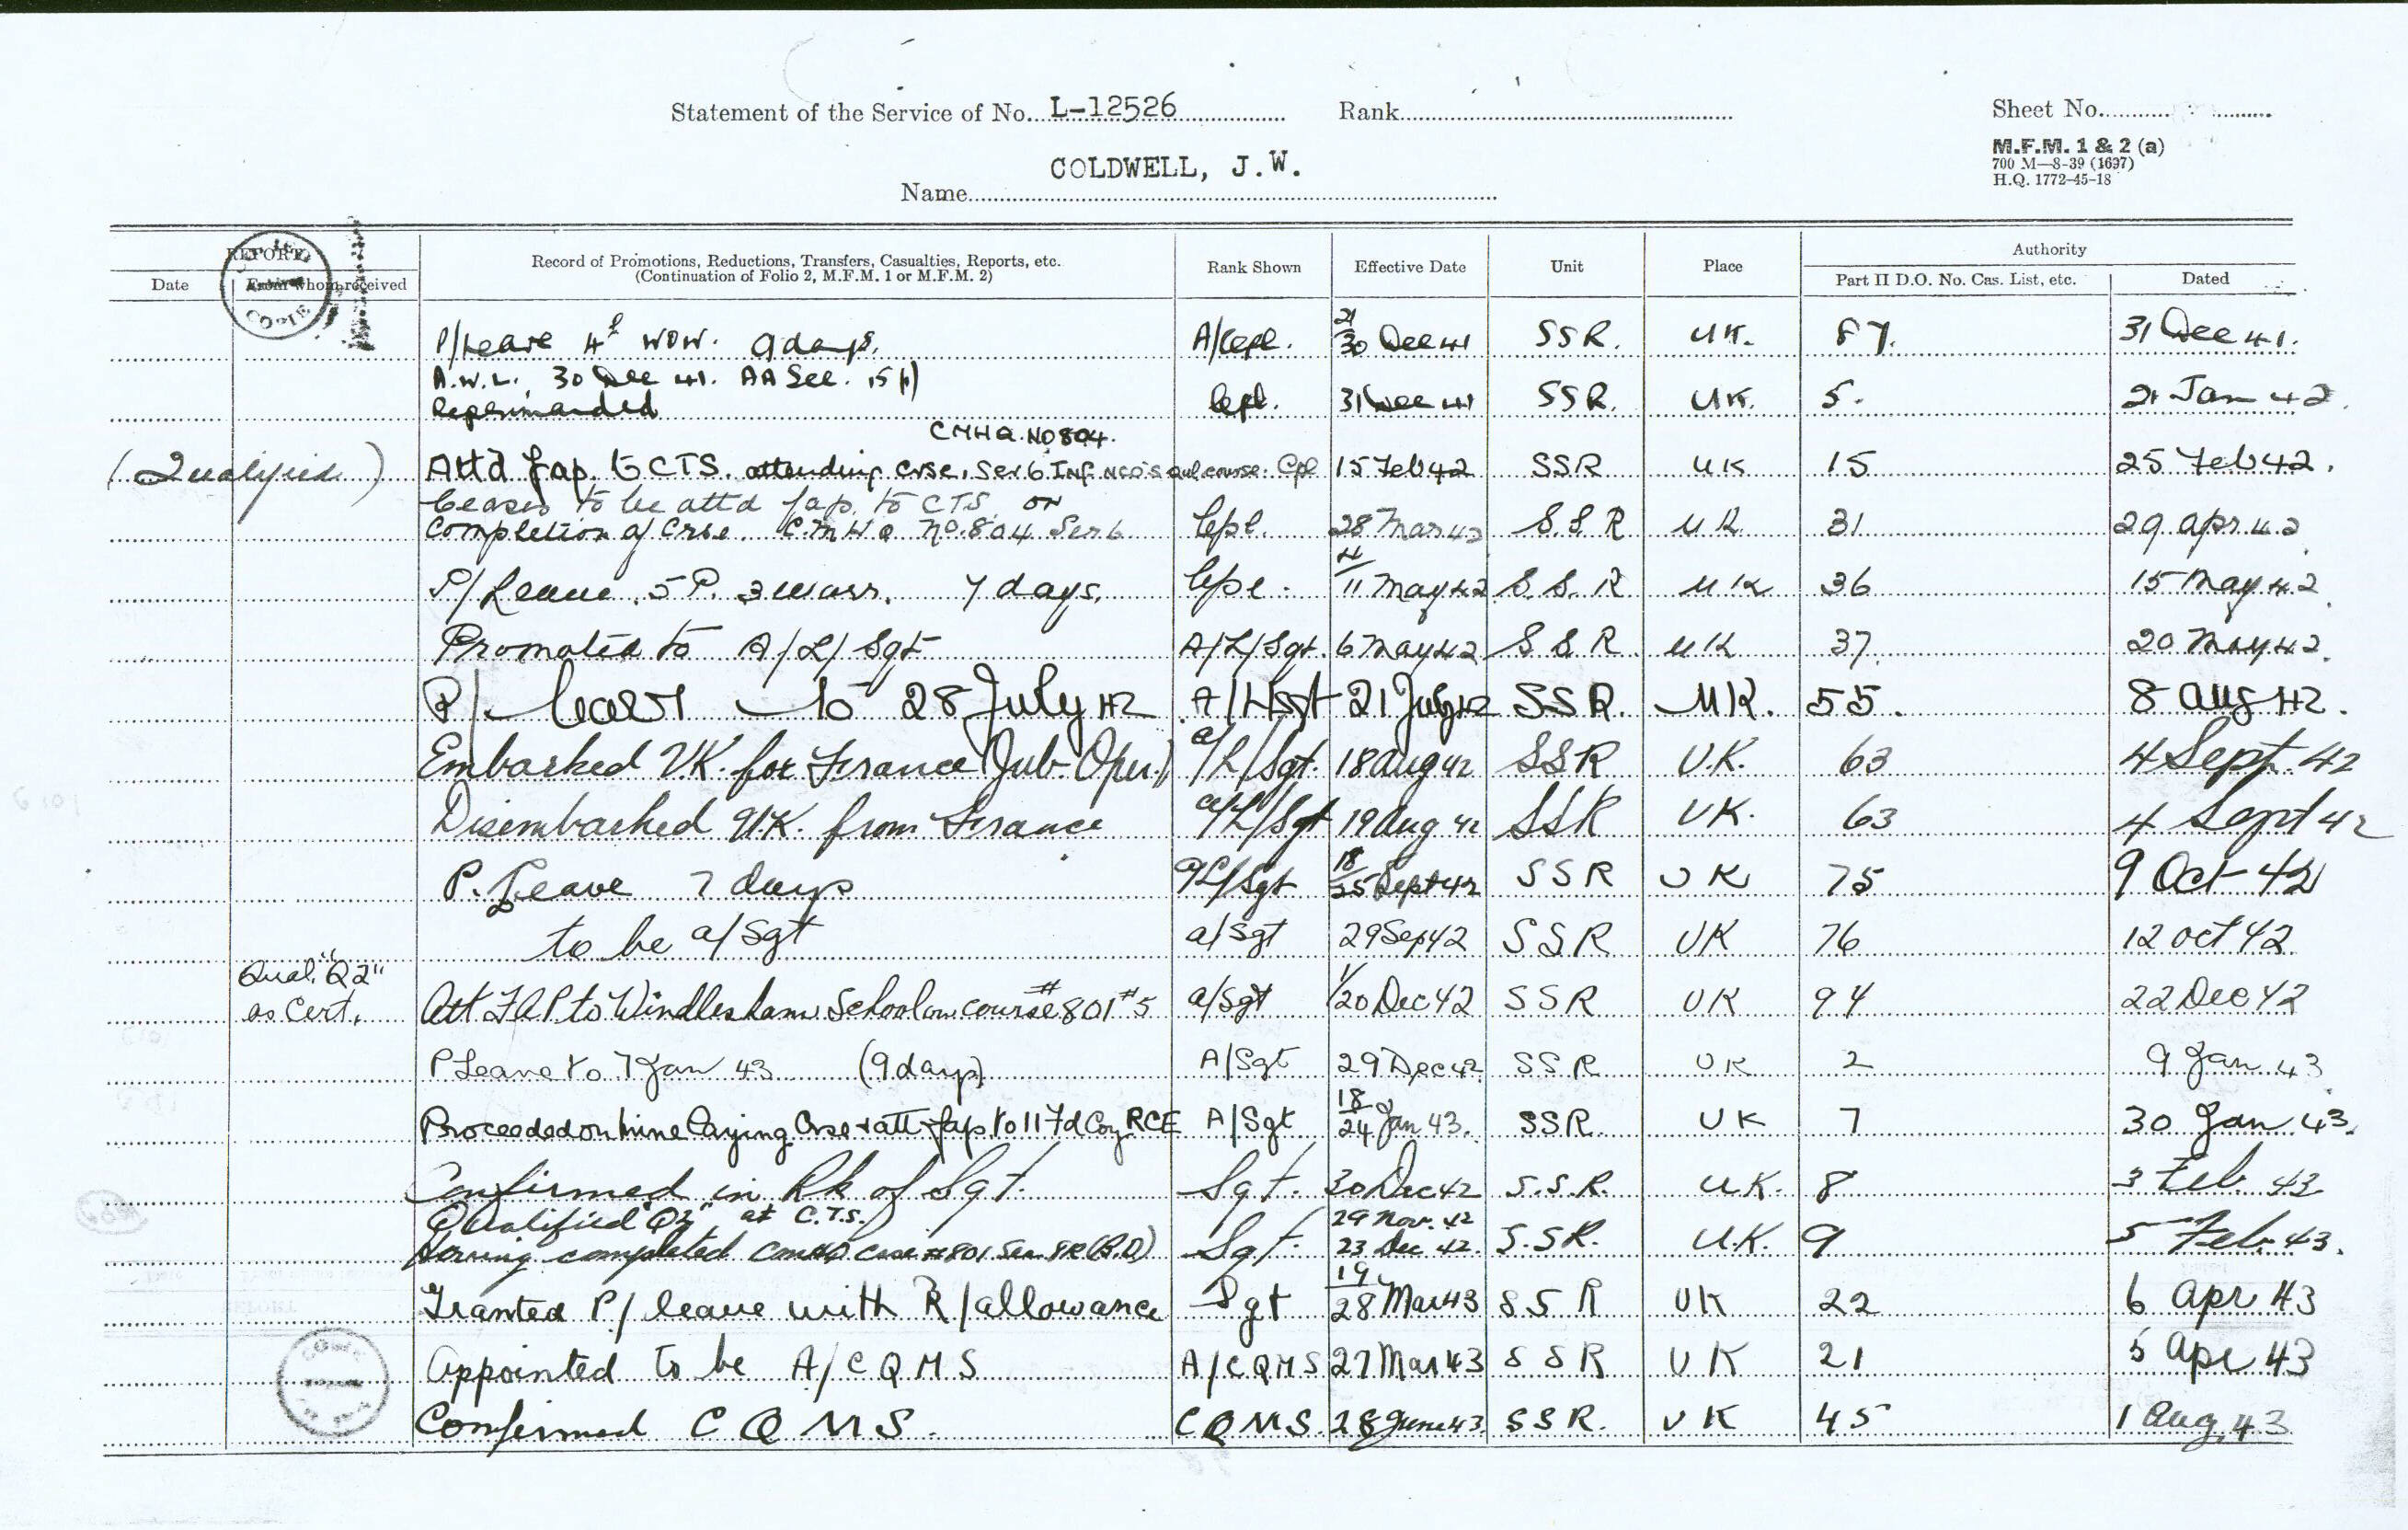 Statement of the Service of No. L-12526 Rank Sheet No.
M.F.M. 1 & 2 (a)
700 M—8-39 (1697)
H.Q. 1772-45-18
COLDWELL, J.W.
Name
REPORT Record of Promotions, Reductions, Transfers, Casualties, Reports, etc. Rank Shown Effective Date Unit Place Authority
Date From whom received (Continuation of Folio 2, M.F.M. 1 or M.F.M. 2) Part II D.O. No. Cas. List, etc. Dated
P/Leave 9 days. A/Cpl. 21/30 Dec 41 SSR. UK. 87. 31 Dec 41.
A.W.L. 30 Dec 41. AA Sec. 15
Reprimanded Cpl. 31 Dec 41 SSR. UK. 5. 21 Jan 42.
CMHQ. NO 804.
(Qualified) Att'd fap. to CTS. attending crse. Ser 6 Inf. NCO's course. Cpl 15 Feb 42 SSR UK 15 25 Feb 42.
Ceases to be attd fap. to CTS. on
completion of crse. C.M.H.Q No. 804 Ser 6 Cpl. 28 Mar 42 S.S.R UK. 31 29 Apr 42
P/Leave. 5 P. 3 warr. 7 days. Cpl. 4/11 May 42 S.S.R UK 36 15 May 42.
Promoted to A/L/Sgt A/L/Sgt. 6 May 42 S S R UK 37. 20 May 42.
P/ Leave to 28 July 42 A/L/Sgt 21 July 42 SSR. UK. 55. 8 Aug 42.
Embarked U.K. for France (Jub. Oper.) a/L/Sgt. 18 Aug 42 SSR U.K. 63 4 Sept. 42
Disembarked U.K. from France a/L/Sgt 19 Aug 42 SSR U.K. 63 4 Sept 42
P. Leave 7 days a/L/Sgt 18/25 Sept 42 SSR UK 75 9 Oct 42
to be a/Sgt a/Sgt 29 Sep 42 SSR UK 76 12 Oct 42
Qual. "Q2"
as Cert. Att FAP to Windlesham School on course # 801 #5 a/Sgt 1/20 Dec 42 SSR UK 94 22 Dec 42
P Leave to 7 Jan 43 (9 days) A/Sgt 29 Dec 42 SSR UK 2 9 Jan 43
Proceeded on mine laying Crse & att fap to 11 Fd Coy RCE A/Sgt 18/24 Jan 43. SSR UK 7 30 Jan 43.
Confirmed in Rk of Sgt. Sgt. 30 Dec 42 S.S.R. U.K. 8 3 Feb. 43
Qualified "Q2" at C.T.S. 29 Nov. 42
Having completed CMHQ Crse #801 Ser. Sgt. 23 Dec 42. S.S.R. U.K. 9 5 Feb. 43.
Granted P/ leave with R/allowance Sgt 19/28 Mar 43 SSR UK 22 6 Apr 43
Appointed to be A/CQMS A/CQMS 27 Mar 43 SSR UK 21 5 Apr 43
Confirmed CQMS. CQMS. 28 June 43 SSR. UK 45 1 Aug. 43